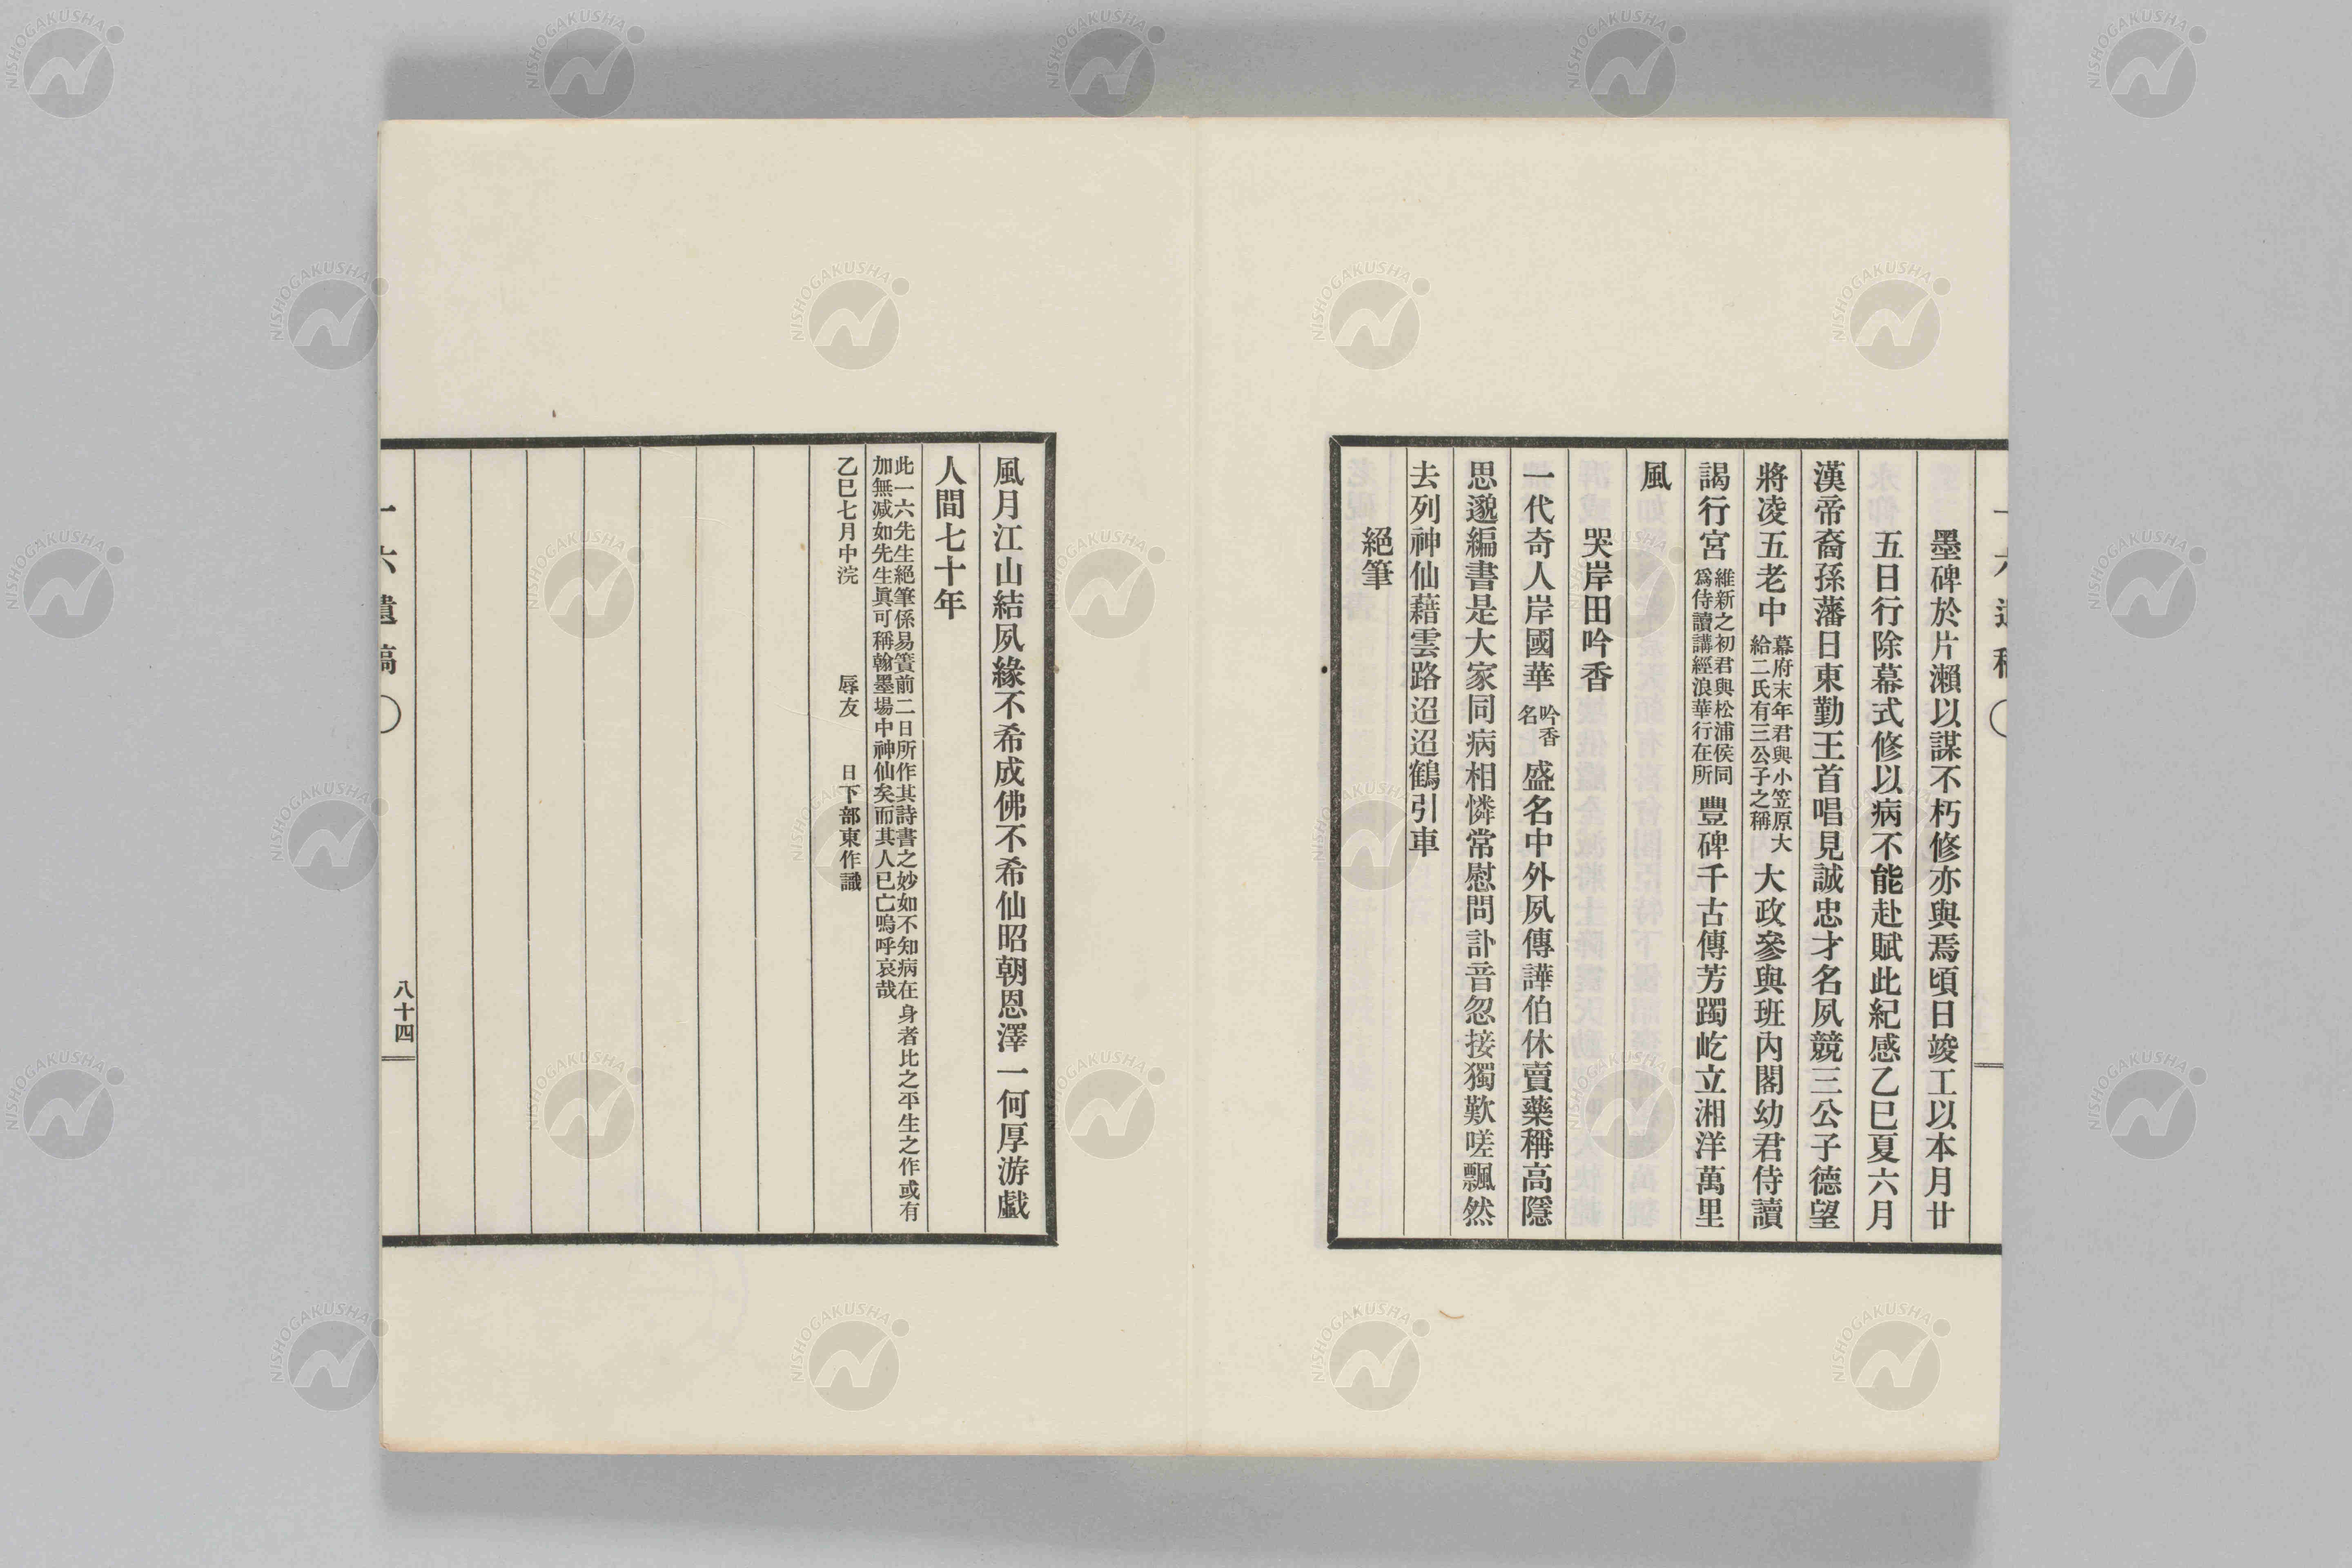 墨碑於片瀬以謀不朽修亦與焉頃日竣工以本月廿
五日行除幕式修以病不能赴賦此紀感乙巳夏六月
漢帝裔孫藩日東勤王首唱見誠忠才名夙競三公子德望
將凌五老中幕府末年君與小笠原大給二氏有三公子之稱大政參與班内閣幼君侍讀
謁行宮維新之初君與松浦侯同爲侍讀講經浪華行在所豐碑千古傳芳躅屹立湘洋萬里
風
哭岸田吟香
一代奇人岸國華吟香名盛名中外夙傳譁伯休賣藥稱高隱
思邈編書是大家同病相憐常慰問訃音忽接獨歎嗟飄然
去列神仙藉雲路迢迢鶴引車
絕筆
風月江山結夙緣不希成佛不希仙昭朝恩澤一何厚游戲
人間七十年
此一六先生絕筆係易簀前二日所作其詩書之妙如不知病在身者比之平生之作或有
加無减如先生眞可稱翰墨場中神仙矣而其人已亡嗚呼哀哉
乙巳七月中浣 辱友 日下部東作識
一六遺稿
八十四
NISHOGAKUSHA